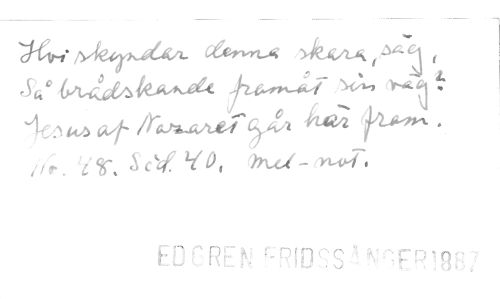 Hvi skyndar denna skara, säg,
Så brådskande framåt sin väg?
Jesus af Nazaret går här fram.
No. 48. Sid. 40. mel-not.
EDGREN FRIDSSÅNGER 1887